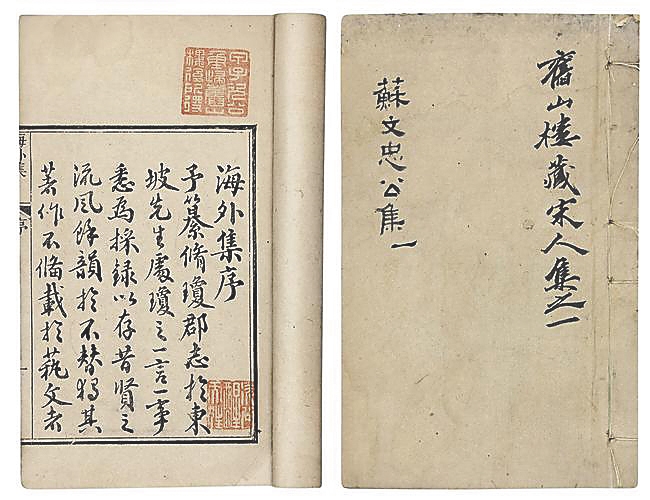 海外集序
予纂脩瓊郡志於東
坡先生處瓊之一言一事
悉為採録以存昔賢之
流風餘韻於不替獨其
著作不備載於藝文者
海外集
序
一
舊山樓藏宋人集之一
蘇文忠公集一